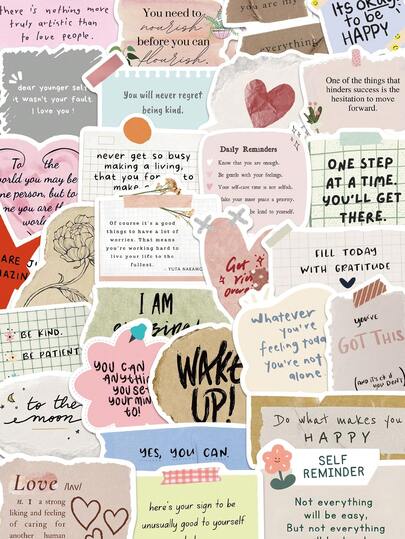 there is nothing more
truly artistic than
to love people.
You need to
nourish
before you can
flourish.
you are my
everything
it's okay
to be
HAPPY
dear younger self,
it wasn't your fault
I love you!
You will never regret
being kind.
One of the things that
hinders success is the
hesitation to move
forward.
To the
world you may be
one person, but to
one you are the
world
never get so busy
making a living,
that you for to
make a
Daily Reminders
Know that you are enough.
Be gentle with your feelings.
Your self-care time is not selfish.
Take your inner peace a priority.
be kind to yourself.
ONE STEP
AT A TIME.
YOU'LL GET
THERE.
Of course it's a good
thing to have a lot of
worries. That means
you're working hard to
live your life to the
fullest.
- YUTA NAKAMO
ARE
FILL TODAY
WITH GRATITUDE
I AM
BE KIND.
BE PATIENT
YOU CAN
ANYTHING
YOU SET
YOUR MIN
TO!
WAKE
UP!
Whatever
you're
feeling today
you're not
alone
you've
GOT THIS
(and it's ok if
you don't)
to the
moon
YES, YOU CAN.
Do what makes you
HAPPY
SELF
REMINDER
Not everything
will be easy,
But not everything
Love /lʌv/
n. 1 a strong
liking and feeling
of caring for
another human
here's your sign to be
unusually good to yourself